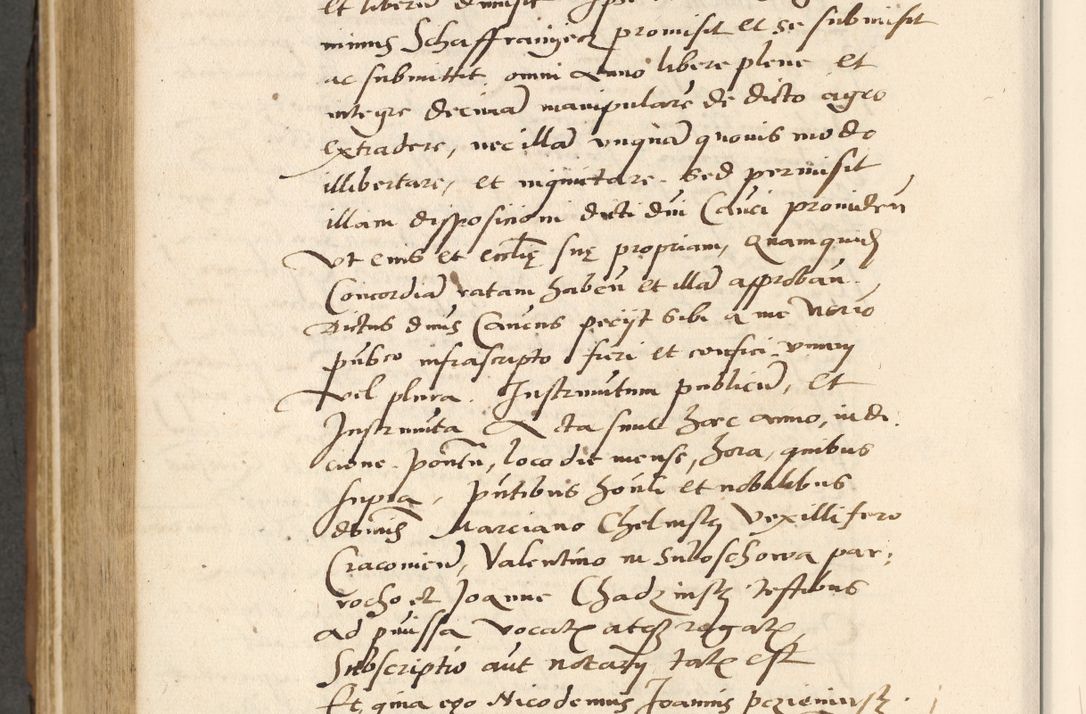 et liberu dimisit
minus Schaffraniecz promisit et se submisit
ac submittit omni anno libere plene et
integre decima manipulare de dicto agro
extradere, nec illa unqua quovis modo
illibertare, et inquietare. Sed permisit
illam disposicioni dicti dni Cauci providen
ut eius et ecclie sue propriam, Quamquid
Concordia ratam haben et illa approban.
Dictus dnus Caucus peciyt sibi a me Notrio
pubco infrascripto fieri et confici unum
vel plura. Instrumtum publicu, et
Instrumta Acta sunt haec anno, indi
cione, pontu, loco die mense, hora, quibus
supra, pntibus honli et nobilibus
domis Marciano Chelmsky Vexillifero
Cracovien, Valentino in Suloschowa par:
rocho et Joanne Chadzinsky testibus
ad pmissa vocat atq rogat
Subscriptio aut notarii talis est
Et quia ego Nicodemus Joannis